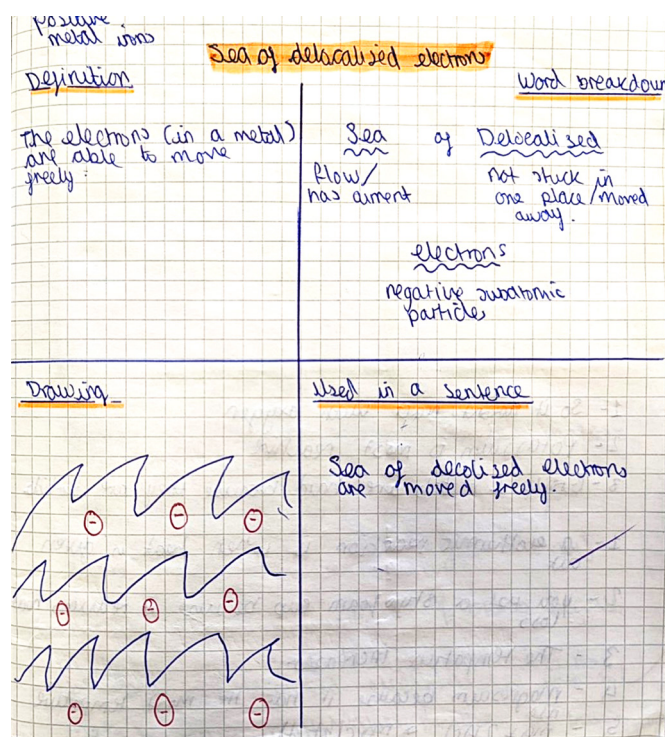 positive
metal ions
Sea of delocalised electrons
Definition
Word breakdown
The electrons (in a metal)
are able to move
freely.
Sea of Delocalised
flow/
has current
not stuck in
one place/moved
away.
electrons
negative subatomic
particles
Drawing
Used in a sentence
Sea of decolised electrons
are moved freely.
- - -
- - -
- - -